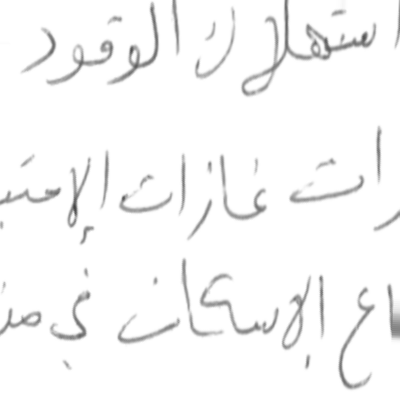 استهلاك الوقود
رات غازات الإحتبـ
ـاع الإسكان في مد